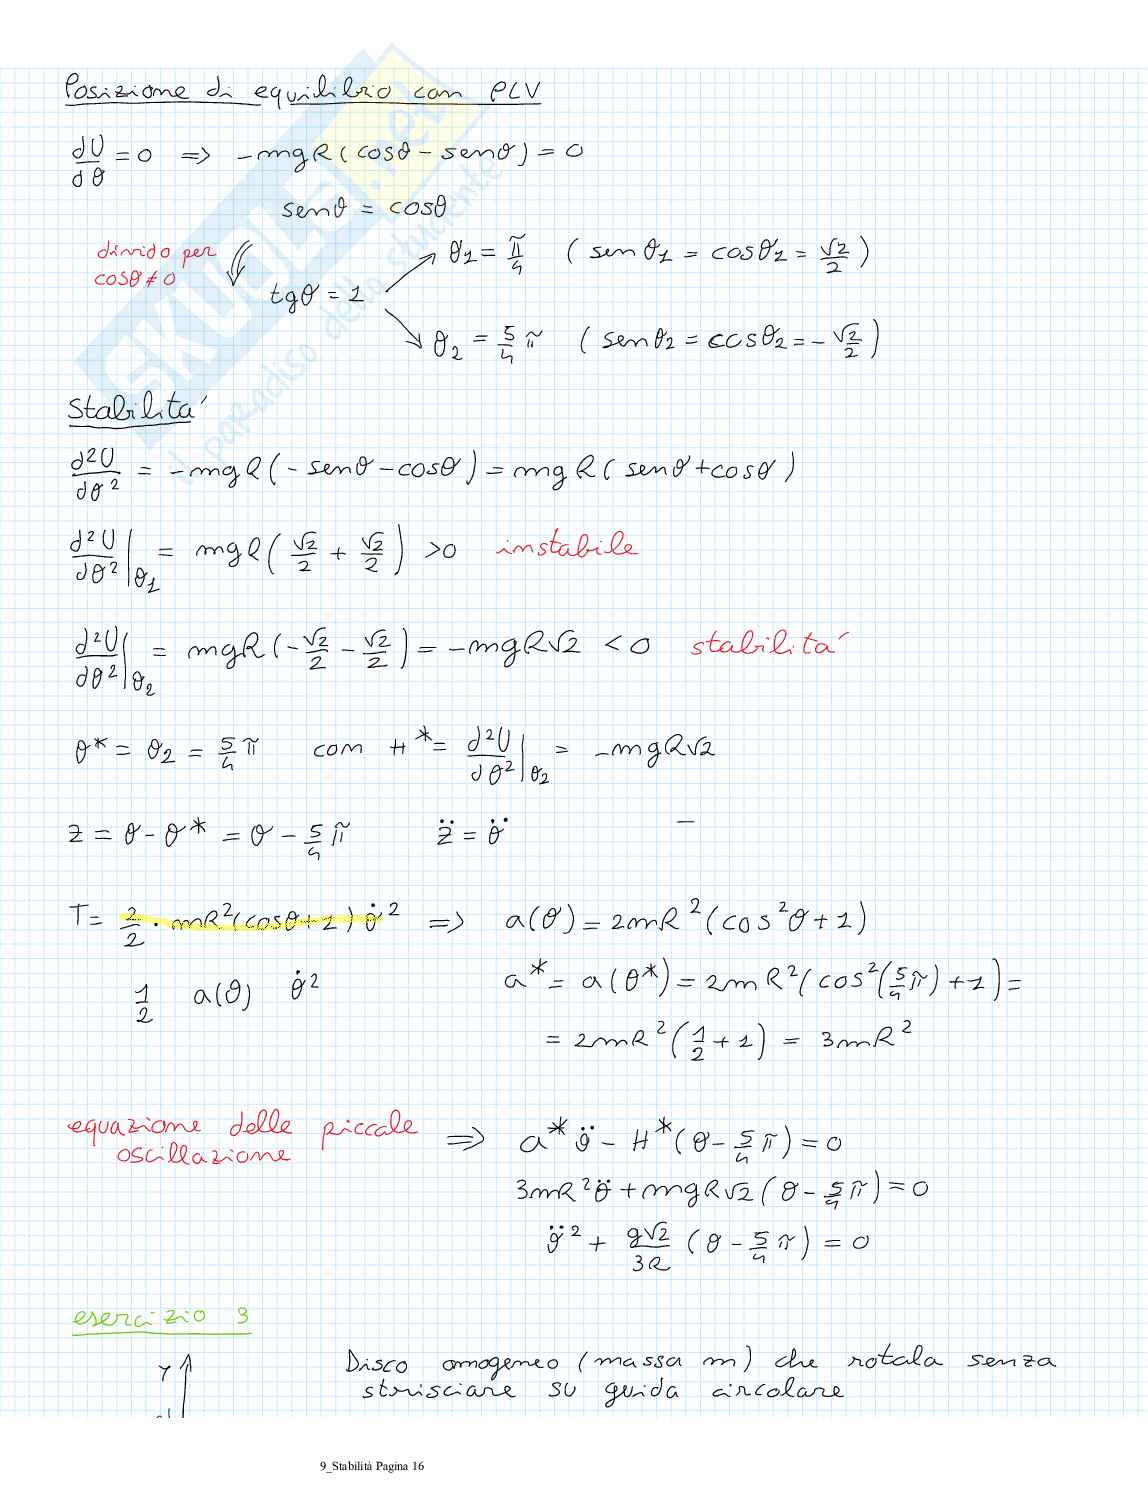 Posizione di equilibrio con PLV
dU/dθ = 0 => -mgR(cosθ - senθ) = 0
senθ = cosθ
divido per
cosθ ≠ 0
tgθ = 1
θ1 = π/4 (senθ1 = cosθ1 = √2/2)
θ2 = 5/4 π (senθ2 = cosθ2 = -√2/2)
Stabilita'
d²U/dθ² = -mgR(-senθ - cosθ) = mgR(senθ + cosθ)
d²U/dθ²|θ1 = mgR(√2/2 + √2/2) >0 instabile
d²U/dθ²|θ2 = mgR(-√2/2 - √2/2) = -mgR√2 < 0 stabilita'
θ* = θ2 = 5/4 π con H* = d²U/dθ²|θ2 = -mgR√2
z = θ - θ* = θ - 5/4 π z̈ = θ̈ –
T = 2/2 · mR²(cosθ+1) θ̇² => a(θ) = 2mR²(cos²θ + 1)
1/2 a(θ) θ̇²
a* = a(θ*) = 2mR²(cos²(5/4 π) + 1) =
= 2mR²(1/2 + 1) = 3mR²
equazione delle piccole
oscillazione
=> a* θ̈ - H*(θ - 5/4 π) = 0
3mR²θ̈ + mgR√2(θ - 5/4 π) = 0
θ̈² + g√2/3R (θ - 5/4 π) = 0
esercizio 3
Y
Disco omogeneo (massa m) che rotala senza
strisciare su guida circolare
9_Stabilità Pagina 16
SKUOLA.net
il paradiso dello studente